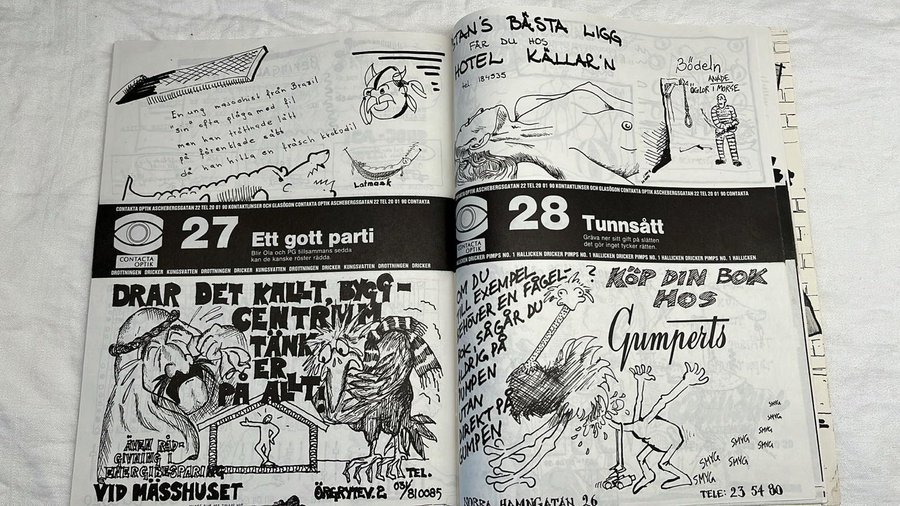 En ung masochist från Brazil
"sin" ofta plåga med fil
men han tröttnade lätt
på förenklade sätt
då han killa en fräsch krokodil
Latmask
CONTAKTA OPTIK ASCHEBERGSGATAN 22 TEL 20 01 90 KONTAKTLINSER OCH GLASÖGON CONTAKTA OPTIK ASCHEBERGSGATAN 22 TEL 20 01 90 CONTAKTA
CONTACTA
OPTIK
27 Ett gott parti
Blir Ola och PG tillsammans sedda
kan de kanske röster rädda.
DROTTNINGEN DRICKER KUNGSVATTEN DROTTNINGEN DRICKER KUNGSVATTEN DROTTNINGEN DRICKER KUNGSVATTEN DROTTNINGEN DRICKER
DRAR DET KALLT, BYGG-
CENTRUM
TÄNK
ER
PÅ ALLT!
ÄVEN RÅD-
GIVNING I
ENERGIBESPARING
VID MÄSSHUSET
ÖRGRYTEV. 2
TEL.
031/
810085
BÄSTA LIGG
FÅR DU HOS
HOTEL KÄLLAR'N
tel. 184535
Bödeln
ANADE
ÖGLOR I MORSE
CONTAKTA OPTIK ASCHEBERGSGATAN 22 TEL 20 01 90 KONTAKTLINSER OCH GLASÖGON CONTAKTA OPTIK ASCHEBERGSGATAN 22 TEL 20 01 90 CONTAKTA
CONTACTA
OPTIK
28 Tunnsått
Gräva ner sitt gift på slätten
det gör inget tycker rätten.
HALLICKEN DRICKER PIMPS NO. 1 HALLICKEN DRICKER PIMPS NO. 1 HALLICKEN DRICKER PIMPS NO. 1 HALLICKEN DRICKER PIMPS NO. 1
OM DU
TILL EXEMPEL
BEHÖVER EN FÅGEL-
BOK, SÅ GÅR DU
ALDRIG PÅ
GUMPEN
UTAN
DIREKT PÅ
GUMPEN
?
KÖP DIN BOK
HOS
Gumperts
SMYG
SMYG
SMYG
SMYG
SMYG
SMYG
SMYG
SMYG
NORRA HAMNGATAN 26
TELE: 23 54 80